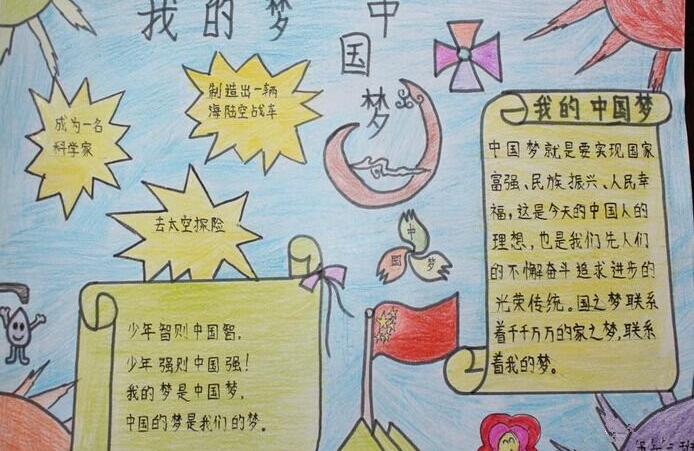 我的梦
中
国
梦
成为一名
科学家
制造出一辆
海陆空战车
去太空探险
中
国 梦
我的中国梦
中国梦就是要实现国家
富强、民族振兴、人民幸
福,这是今天的中国人的
理想,也是我们先人们
的不懈奋斗追求进步的
光荣传统。国之梦联系
着千千万万的家之梦,联系
着我的梦。
少年智则中国智,
少年强则中国强!
我的梦是中国梦,
中国的梦是我们的梦。